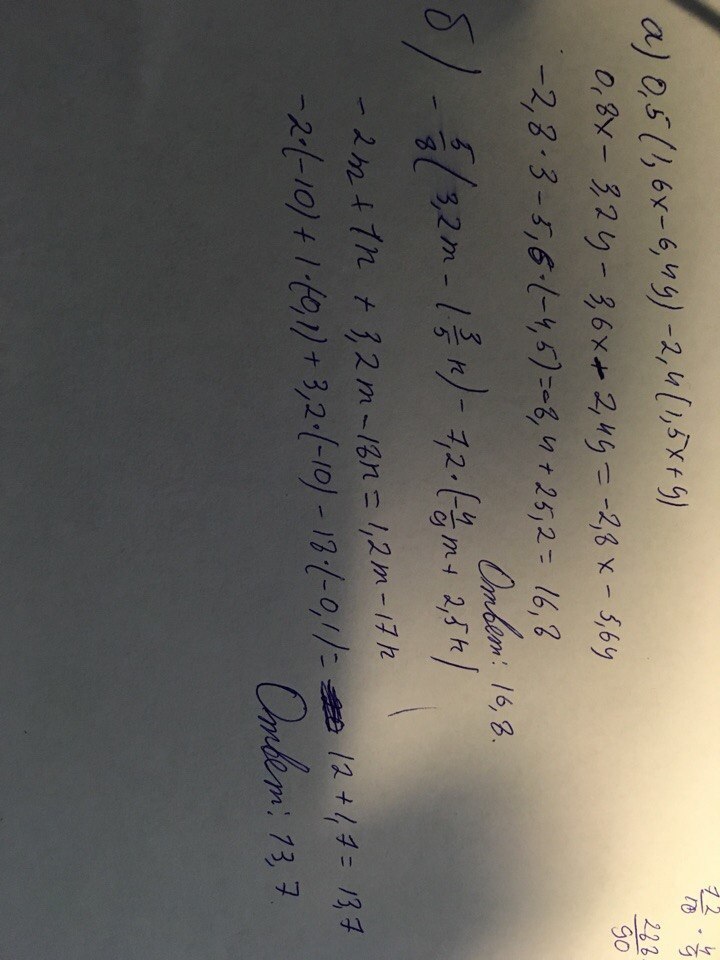 а) 0,5(1,6x-6,4y)-2,4(1,5x+y)
0,8x-3,2y-3,6x-2,4y=-2,8x-5,6y
-2,8·3-5,6·(-4,5)=-8,4+25,2=16,8
Ответ: 16,8.
б) -5/8(3,2m-1 3/5n)-7,2·(-4/9m+2,5n)
-2m+1n+3,2m-18n=1,2m-17n
-2·(-10)+1·(-0,1)+3,2·(-10)-18·(-0,1)= 12+1,7=13,7
Ответ: 13,7.
72/10 · 4/9
288/90